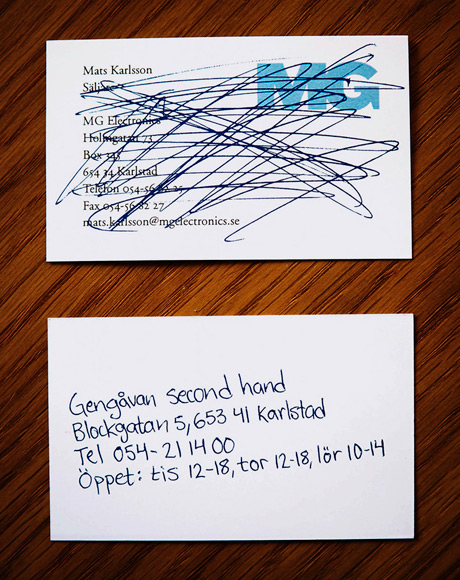 Mats Karlsson
Säljare
MG
MG Electronics
Holmgatan 73
Box 343
654 34 Karlstad
Telefon 054-56 82 25
Fax 054-56 82 27
mats.karlsson@mgelectronics.se
Gengåvan second hand
Blockgatan 5, 653 41 Karlstad
Tel 054-21 14 00
Öppet: tis 12-18, tor 12-18, lör 10-14